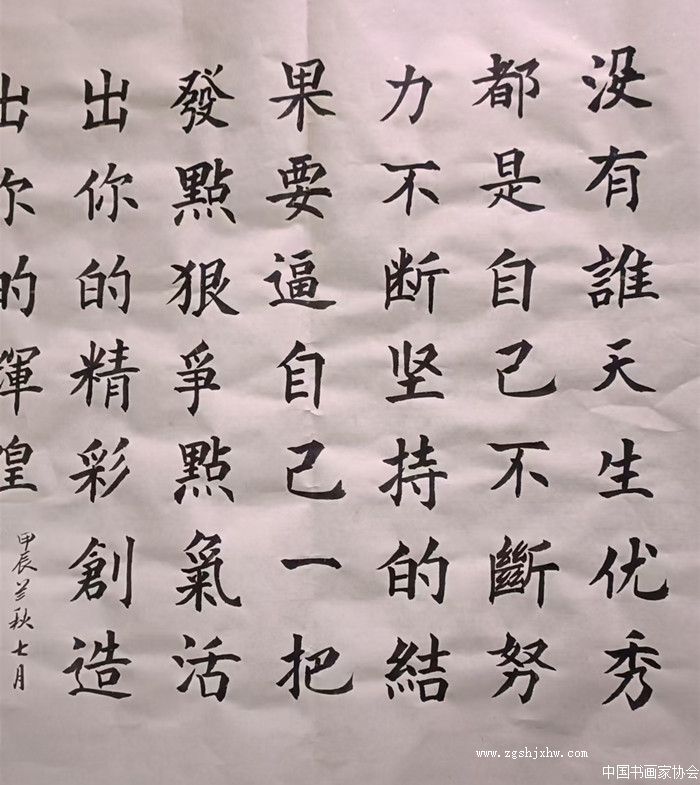 没有誰天生优秀
都是自己不斷努
力不断坚持的結
果要逼自己一把
發點狠爭點氣活
出你的精彩創造
出你的輝煌
甲辰兰秋七月
www.zgshjxhw.com
中国书画家协会